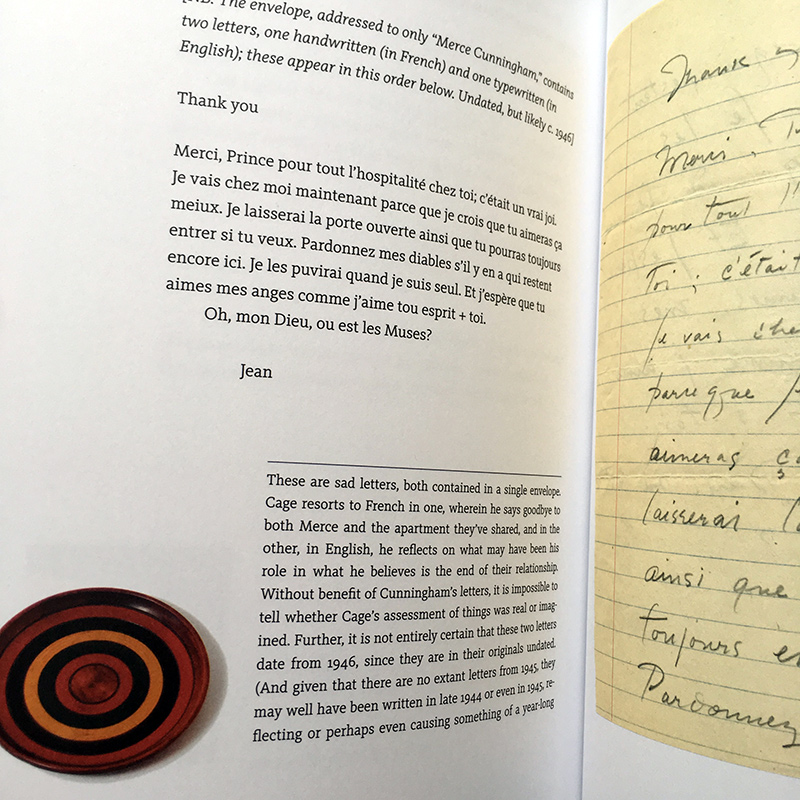 [NB: The envelope, addressed to only “Merce Cunningham,” contains
two letters, one handwritten (in French) and one typewritten (in
English); these appear in this order below. Undated, but likely c. 1946]
Thank you
Merci, Prince pour tout l’hospitalité chez toi; c’était un vrai joi.
Je vais chez moi maintenant parce que je crois que tu aimeras ça
meiux. Je laisserai la porte ouverte ainsi que tu pourras toujours
entrer si tu veux. Pardonnez mes diables s’il y en a qui restent
encore ici. Je les puvirai quand je suis seul. Et j’espère que tu
aimes mes anges comme j’aime tou esprit + toi.
Oh, mon Dieu, ou est les Muses?
Jean
These are sad letters, both contained in a single envelope.
Cage resorts to French in one, wherein he says goodbye to
both Merce and the apartment they’ve shared, and in the
other, in English, he reflects on what may have been his
role in what he believes is the end of their relationship.
Without benefit of Cunningham’s letters, it is impossible to
tell whether Cage’s assessment of things was real or imag-
ined. Further, it is not entirely certain that these two letters
date from 1946, since they are in their originals undated.
(And given that there are no extant letters from 1945, they
may well have been written in late 1944 or even in 1945, re-
flecting or perhaps even causing something of a year-long
Thank
Merci,
pour tout l'
toi; c'était
je vais che
parce que
aimeras ça
laisserai
ainsi que
toujours en
Pardonnez